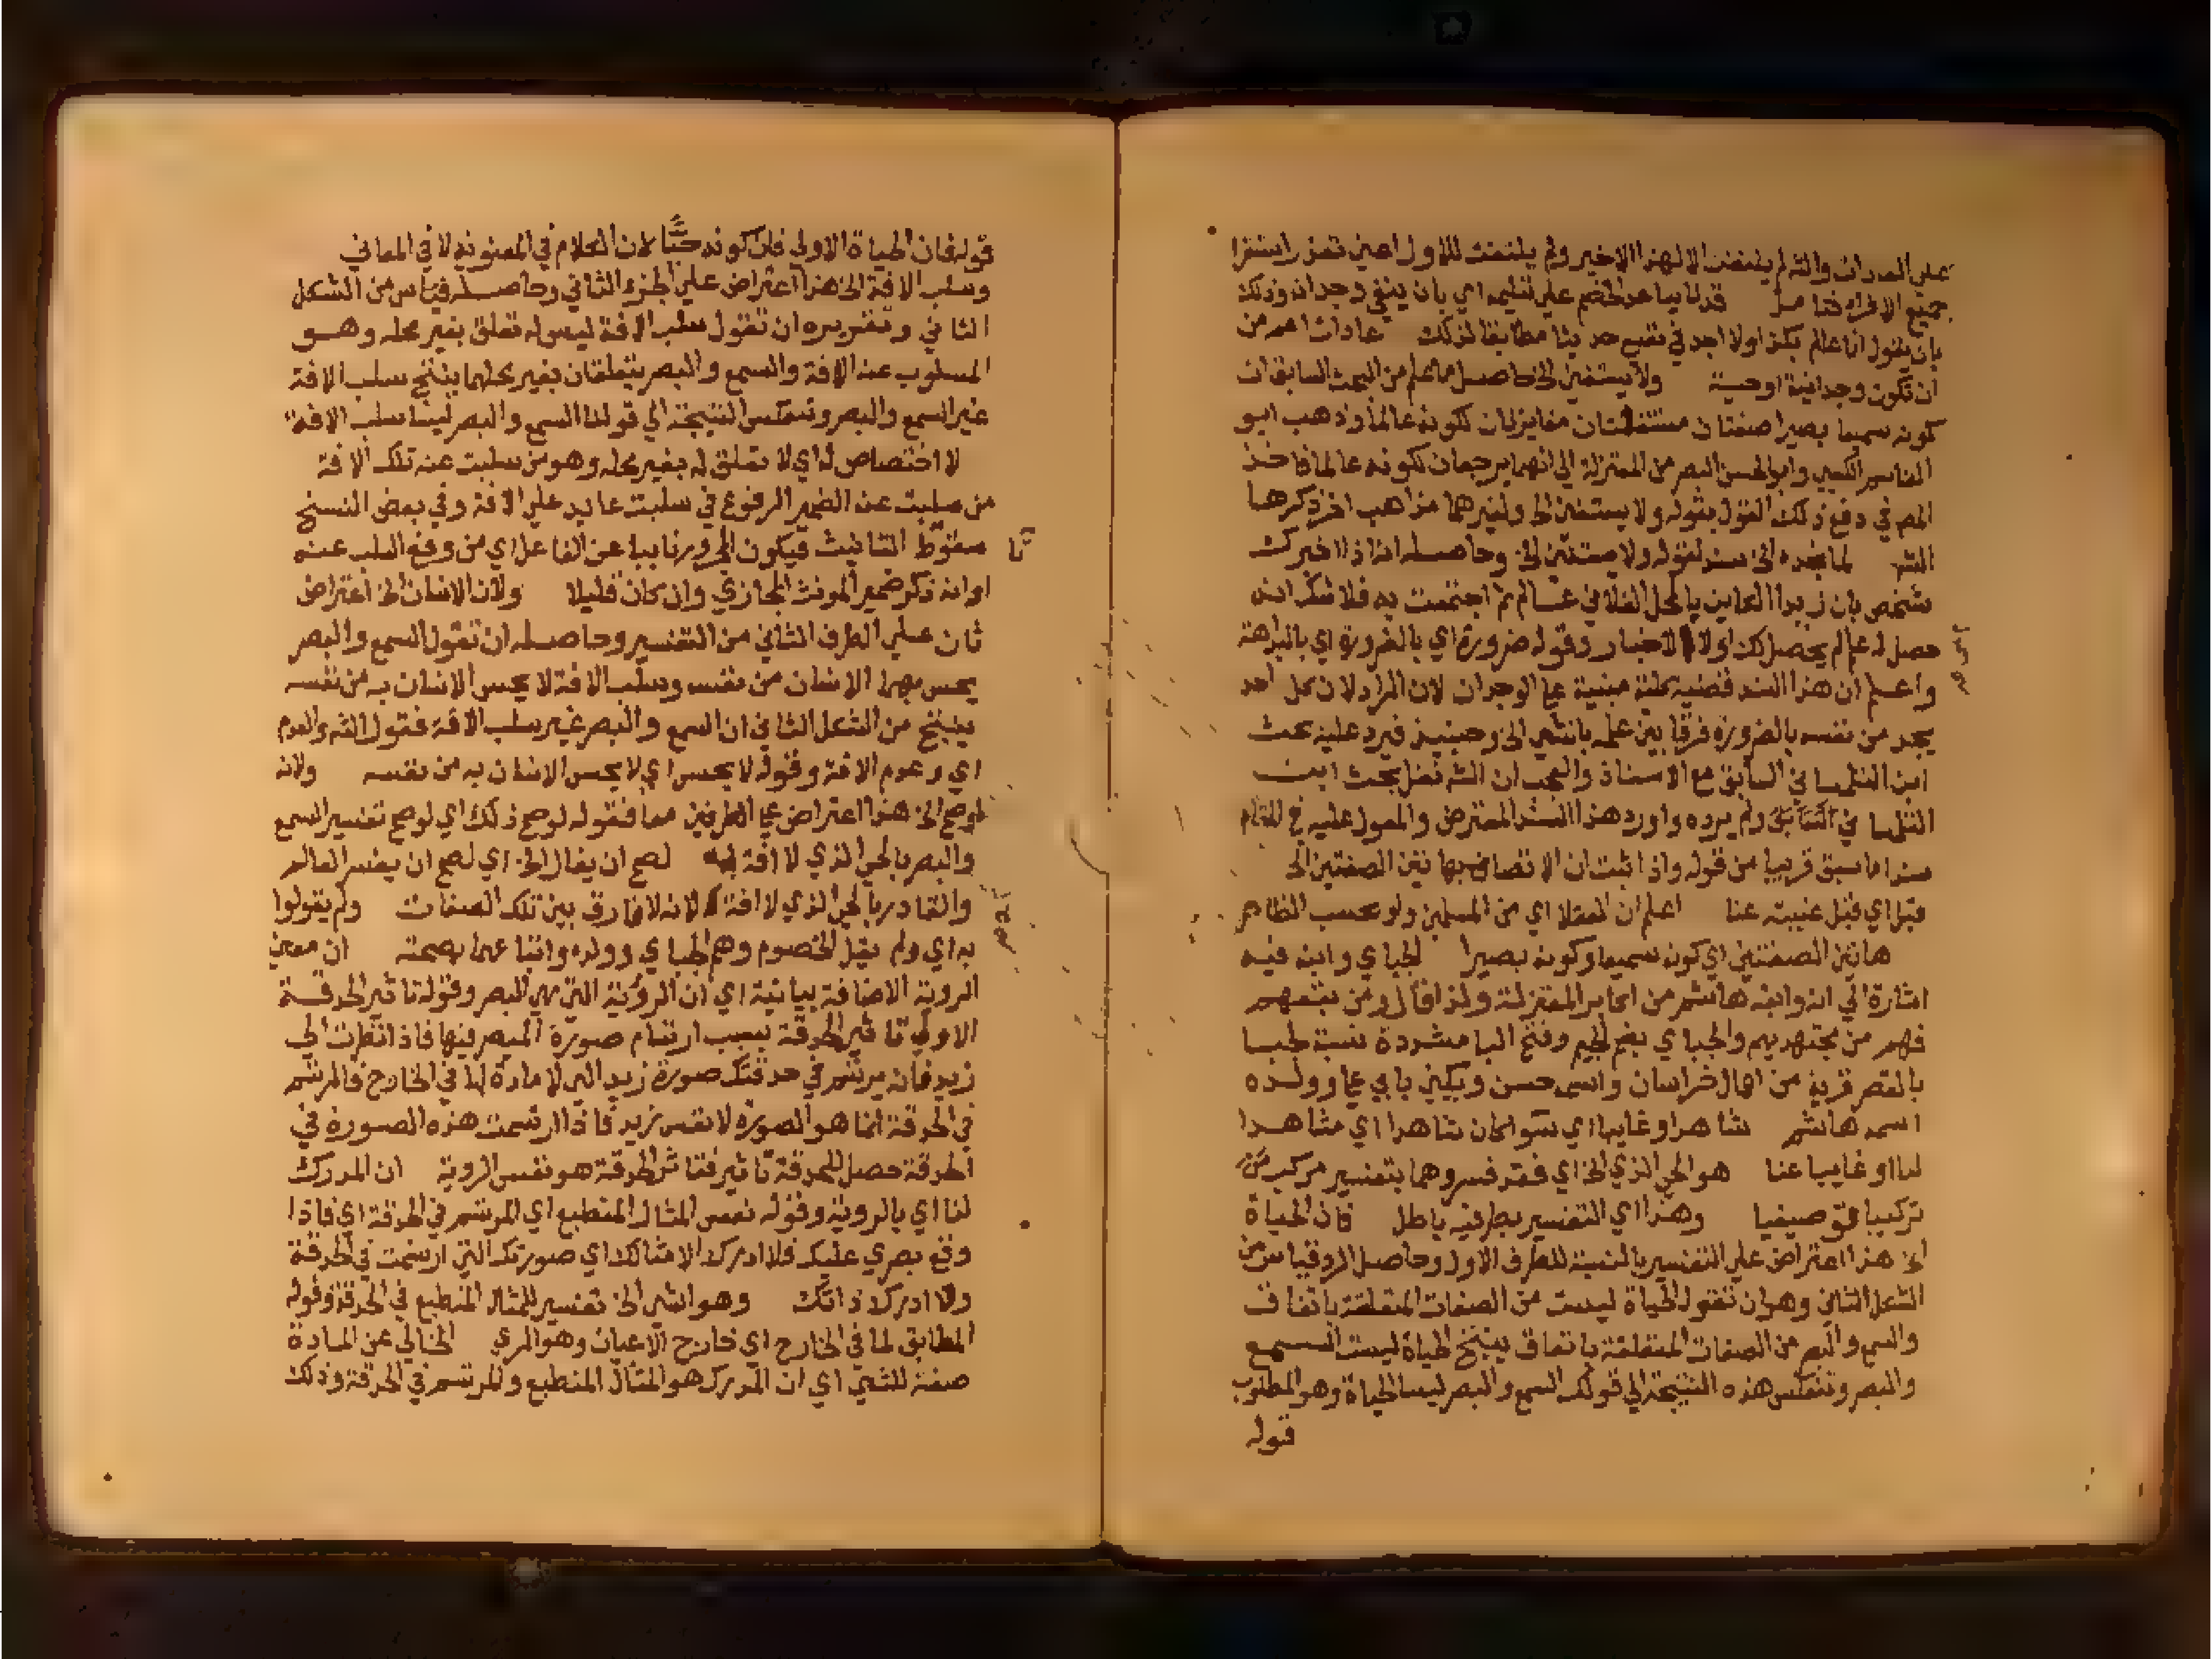 علي المدان والشه لم يلتفت الا لهذا الاخير ولم يلتفت للاول اعني تعذر استقرا
جميع الافراد فتامل قدلنا بيا عد الخصم علي تسليمه اي بان ينفي وجدانه وذلك
بان يقول انا عالم بكذا ولا اجد في نفسي حديثا مطابقا لذلك عادات اعم من
ان تكون وجدانية او حسية ولا يستغني الخ حاصل ما علم من البحث السابق ان
كونه سميعا بصيرا صفتان مستقلتان مغايرتان لكونه عالما وذهب ابو
القاسم الكعبي وابو الحسن البصر من المعتزلة الي انهما يرجعان لكونه عالما فاخذ
المص في دفع ذلك القول بقوله ولا يستغني الخ ولغيرهما مذاهب اخر ذكرها
الشه لما نجده الخ سند لقوله ولا يستغني الخ وحاصله انه اذا اخبرك
شخص بان زيدا الكاين بالمحل الفلاني عالم ثم اجتمعت به فلا شك انه
حصل له علم لم يحصل لك اولا بالاخبار وقوله ضرورة اي بالضرورة اي بالبداهة
واعلم ان هذا السند قضية كلية مبنية علي الوجدان لان المراد لان كل احد
يجد من نفسه بالضرورة فرقا بين علمه بالشي الخ وحينيذ فيرد عليه بحث
ابن التلمسا في السابق مع الاستاذ والعجب ان الشه نقل بحث ابن
التلمسا في السابق ولم يرده واورد هذا السند المعترض والمعول عليه في المقام
سندا ما سبق قريبا من قوله واذا ثبت ان الاتصاف بها تين الصفتين الخ
قبل اي قبل غيبته عنا اعلم ان العقلا اي من المسلمين ولو بحسب الظاهر
هاتين الصفتين اي كونه سميعا وكونه بصيرا الجباي وابنه فيه
اشارة الي انه وابنه هاشم من اكابر المعتزلة ولذا قال ومن تبعهم
فهم من مجتهديهم والجباي بضم الجيم وفتح البا مشددة نسبة لجبا
بالقصر قرية من اعمال خراسان واسمه حسن ويكني بابي علي وولده
اسمه هاشم شاهدا وغايبا اي سوا كان شاهدا اي مشاهدا
لنا او غايبا عنا هو الحي الذي الخ اي فقد فسروهما بتفسير مركب من
تركيبا توصيفيا وهذا اي التفسير بطرفيه باطل فان الحياة
الخ هذا اعتراض علي التفسير بالنسبة للطرف الاول وحاصل الرد قياس من
الشكل الثاني وهو ان تقول الحياة ليست من الصفات المتعلقة باتفاق
والسمع والبصر من الصفات المتعلقة باتفاق ينتج الحياة ليست السمع
والبصر وتنعكس هذه النتيجة الي قولك السمع والبصر ليسا الحياة وهو المطلوب
قوله
قوله فان الحياة الاولي فان كونه حيا لان الكلام في المعنوية لا في المعاني
وسلب الافة الخ هذا اعتراض علي الجزء الثاني وحاصله قياس من الشكل
الثاني وتقريره ان تقول سلب الافة ليس له تعلق بغير محله وهو
المسلوب عنه الافة والسمع والبصر يتعلقان بغير محلهما ينتج سلب الافة
غير السمع والبصر وتنعكس النتيجة الي قولنا السمع والبصر ليسا سلب الافة
لا اختصاص له اي لا تعلق له بغير محله وهو من سلبت عنه تلك الافة
من سلبت عنه الضمير المرفوع في سلبت عايد علي الافة وفي بعض النسخ
سقوط التانيث فيكون المجرور نايبا عن الفاعل اي من وقع السلب عنه
او انه ذكر ضمير المونث المجازي وان كان قليلا ولان الانسان الخ اعتراض
ثان علي الطرف الثاني من التفسير وحاصله ان تقول السمع والبصر
يحس بهما الانسان من نفسه وسلب الافة لا يحس الانسان به من نفسه
ينتج من الشكل الثاني ان السمع والبصر غير سلب الافة فقول الشه والعدم
اي وعدم الافة وقوله لا يحس اي لا يحس الانسان به من نفسه ولانه
لو صح الخ هذا اعتراض علي الطرفين معا فقوله لو صح ذلك اي لو صح تفسير السمع
والبصر بالحي الذي لا افة به لصح ان يقال الخ اي لصح ان يفسر العالم
والقادر بالحي الذي لا افة به لانه لا فارق بين تلك الصفات ولم يقولوا
به اي ولم يقل الخصوم وهم الجباي وولده واتباعهما بصحته ان معني
الروية الاضافة بيانية اي ان الروية التي هي البصر وقوله تاثير الحدقة
الاولي تاثر الحدقة بسبب ارتسام صورة المبصر فيها فاذا نظرت الي
زيد فانه يرتسم في حدقتك صورة زيد التي لا مادة لها في الخارج فالمرتسم
في الحدقة انما هو الصورة لا نفس زيد فاذا ارتسمت هذه الصورة في
الحدقة حصل للحدقة تاثير فتاثر الحدقة هو نفس الروية ان المدرك
لنا اي بالروية وقوله نفس المثال المنطبع اي المرتسم في الحدقة اي فاذا
وقع بصري عليك فلا ادرك الا مثالك اي صورتك التي ارتسمت في الحدقة
ولا ادرك ذاتك وهو الشي الخ تفسير للمثال المنطبع في الحدقة وقوله
المطابق لما في الخارج اي خارج الاعيان وهو المري الخالي عن المادة
صفة للشي اي ان المدرك هو المثال المنطبع والمرتسم في الحدقة وذلك